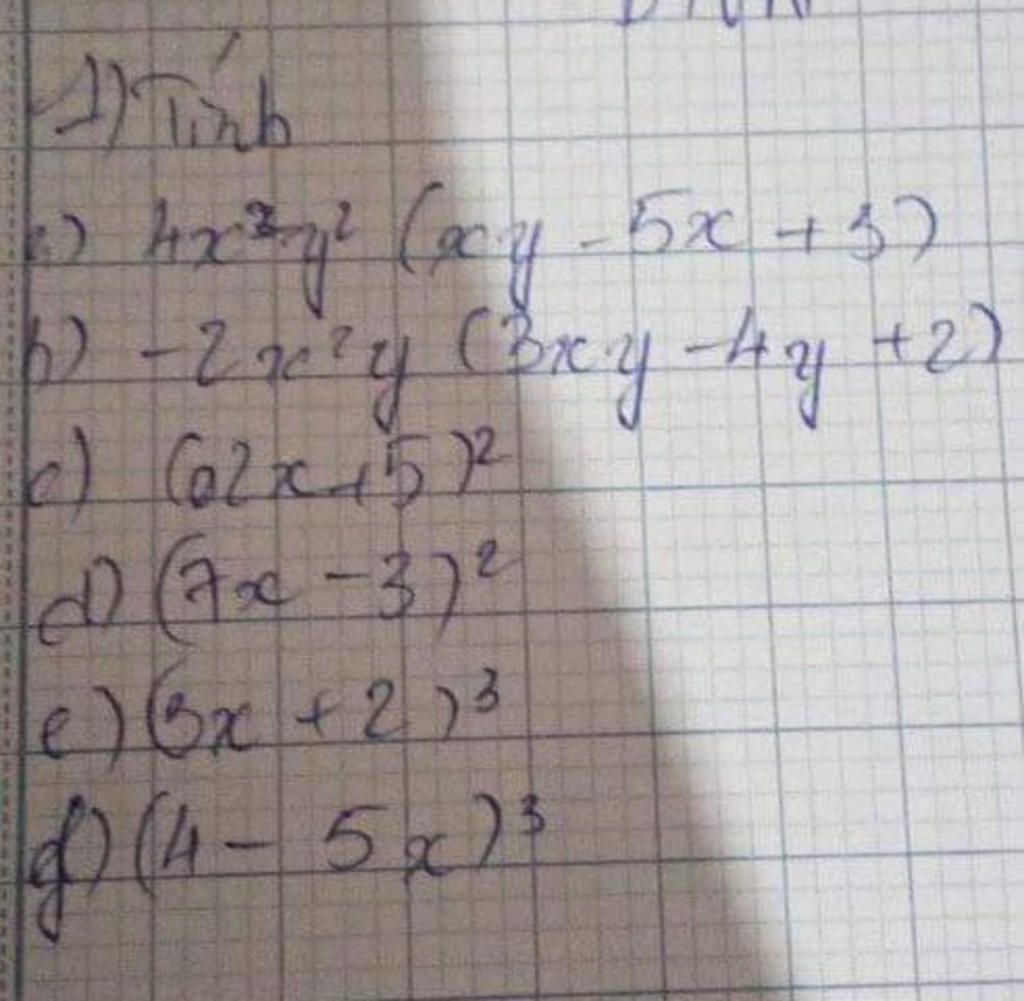 1) Tính
a) 4x³y² (xy - 5x + 3)
b) -2x²y (3xy - 4y + 2)
c) (2x + 5)²
d) (7x - 3)²
e) (3x + 2)³
f) (4 - 5x)³